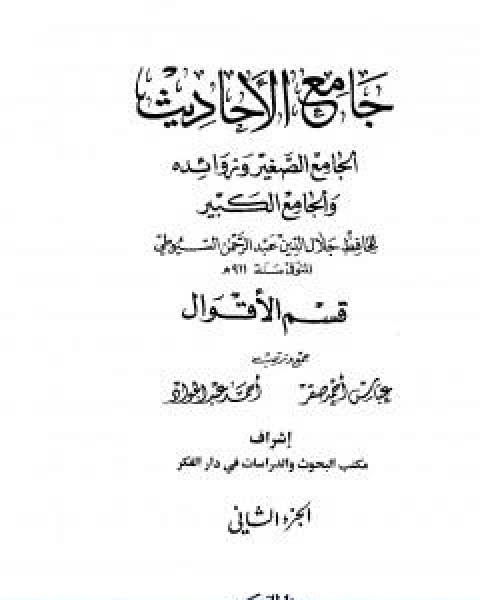 جَامِعُ الأَحَادِيْث
الجَامِعُ الصَّغِيْر وَزَوَائِدِه
وَالجَامِعُ الكَبِيْر
لِلحَافِظِ جَلَال الدِّين عَبْد الرَّحْمٰن السُّيُوطِي
المتوفى سَنة ٩١١ هـ
قسم الأقوال
جمع وترتيب
عباس أحمد صقر أحمد عبد الجواد
إشراف
مكتب البحوث والدراسات في دار الفكر
الجزء الثاني